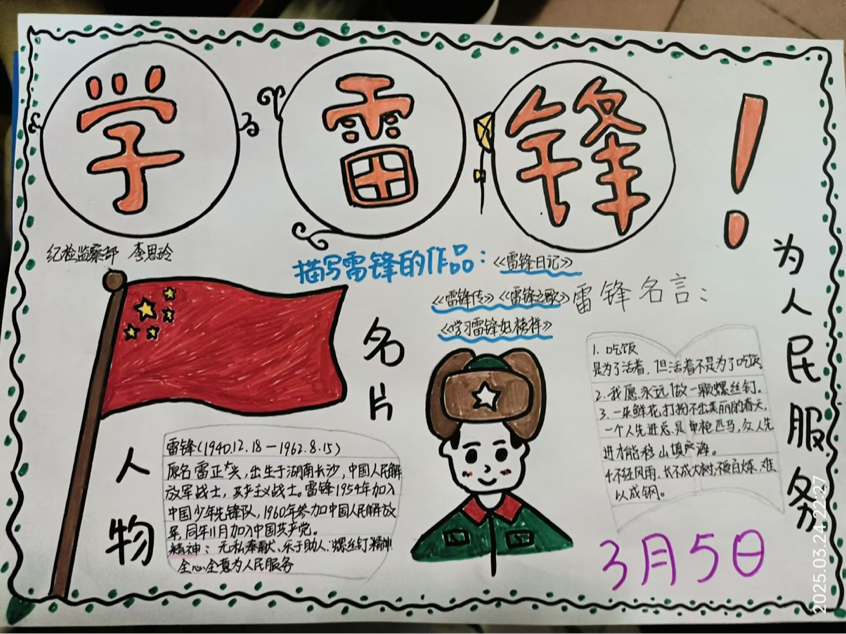 学雷锋!
纪检监察部 李思玲
为人民服务
描写雷锋的作品:《雷锋日记》
《雷锋传》《雷锋之歌》
《学习雷锋好榜样》
雷锋名言:
1. 吃饭
是为了活着,但活着不是为了吃饭
2. 我愿永远做一颗螺丝钉。
3. 一朵鲜花打扮不出美丽的春天,
一个人先进总是单枪匹马,众人先
进才能移山填海。
4.不经风雨,长不成大树;不被百炼,难
以成钢。
人物
名片
雷锋(1940.12.18—1962.8.15)
原名雷正兴,出生于湖南长沙,中国人民解
放军战士,共产主义战士。雷锋1954年加入
中国少年先锋队,1960年参加中国人民解放
军,同年11月加入中国共产党。
精神:无私奉献、乐于助人、螺丝钉精神
全心全意为人民服务
3月5日
2025.03.24 22:27